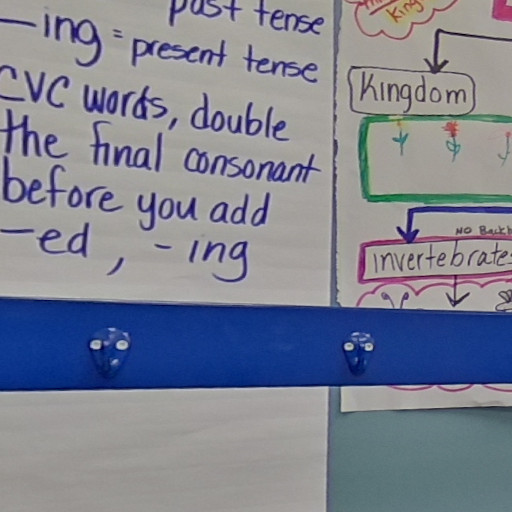 past tense
-ing = present tense
CVC words, double
the final consonant
before you add
-ed, -ing
King
Kingdom
NO Backb
invertebrates